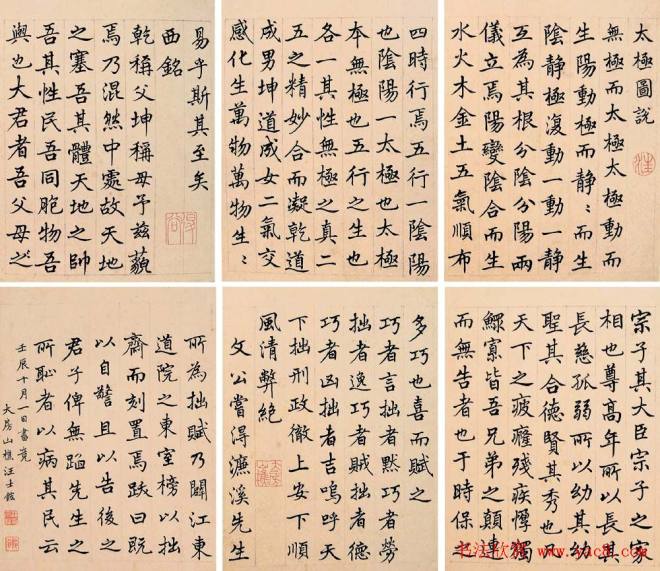 太極圖說
無極而太極太極動而
生陽動極而静〻而生
陰静極復動一動一静
互為其根分陰分陽兩
儀立焉陽變陰合而生
水火木金土五氣順布
四時行焉五行一陰陽
也陰陽一太極也太極
本無極也五行之生也
各一其性無極之真二
五之精妙合而凝乾道
成男坤道成女二氣交
感化生萬物萬物生〻
易乎斯其至矣
西銘
乾稱父坤稱母予茲藐
焉乃混然中處故天地
之塞吾其體天地之帥
吾其性民吾同胞物吾
與也大君者吾父母之
宗子其大臣宗子之家
相也尊高年所以長其
長慈孤弱所以幼其幼
聖其合德賢其秀也凡
天下之疲癃殘疾惸獨
鰥寡皆吾兄弟之顛連
而無告者也于時保
多巧也喜而賦之
巧者言拙者默巧者勞
拙者逸巧者賊拙者德
巧者凶拙者吉嗚呼天
下拙刑政徹上安下順
風清弊絕
文公嘗得濂溪先生
所為拙賦乃闢江東
道院之東室榜以拙
齋而刻置焉跋曰既
以自警且以告後之
君子俾無蹈先生之
所恥者以病其民云
壬辰十月一日書竟
大居山樵汪士鋐
书法欣赏 www.yac8.com